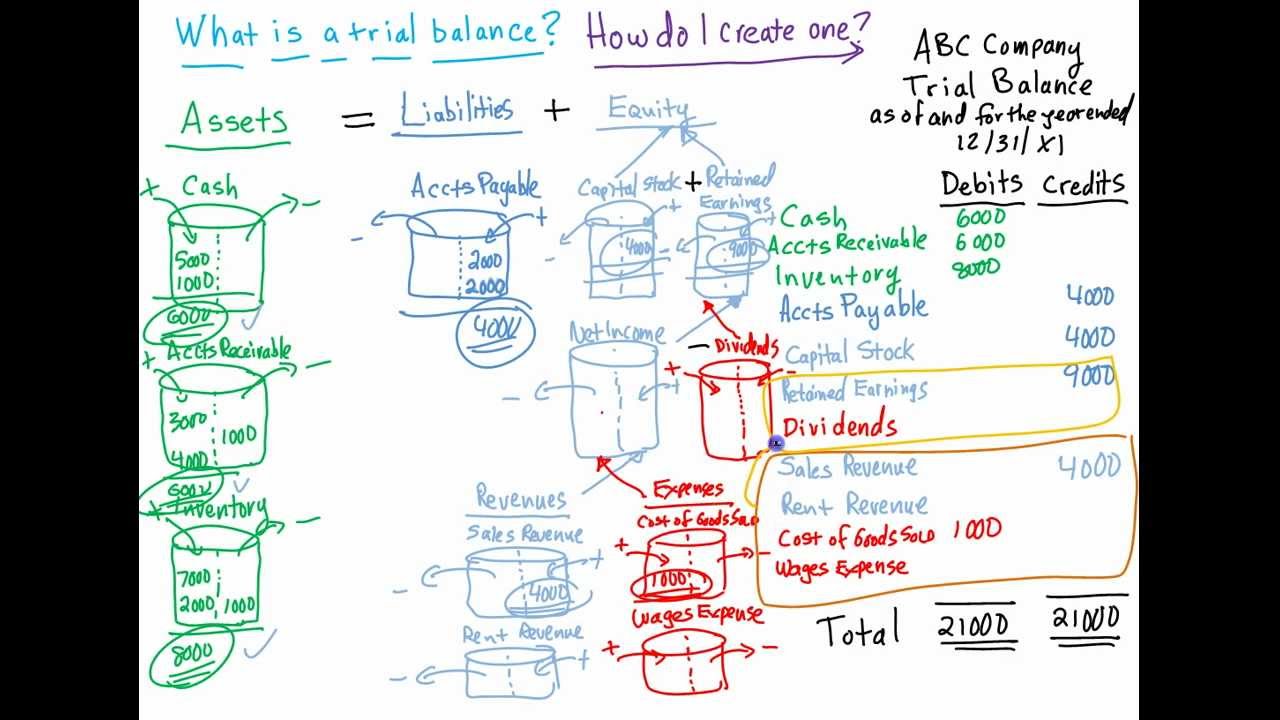 What is a trial balance? How do I create one?
ABC Company
Trial Balance
as of and for the year ended
12/31/X1
Assets = Liabilities + Equity
+ Cash -
5000
1000
6000
+ Accts Receivable -
3000
1000
4000
6000
+ Inventory -
7000
2000 1000
8000
Accts Payable
- +
2000
2000
4000
Capital Stock + Retained Earnings
- +
4000
- +
9000
Net Income
- +
- Dividends
+ -
Revenues
Sales Revenue
- +
4000
Rent Revenue
- +
Expenses
Cost of Goods Sold
+ -
1000
Wages Expense
+ -
Debits Credits
Cash 6000
Accts Receivable 6000
Inventory 8000
Accts Payable 4000
Capital Stock 4000
Retained Earnings 9000
Dividends
Sales Revenue 4000
Rent Revenue
Cost of Goods Sold 1000
Wages Expense
Total 21000 21000